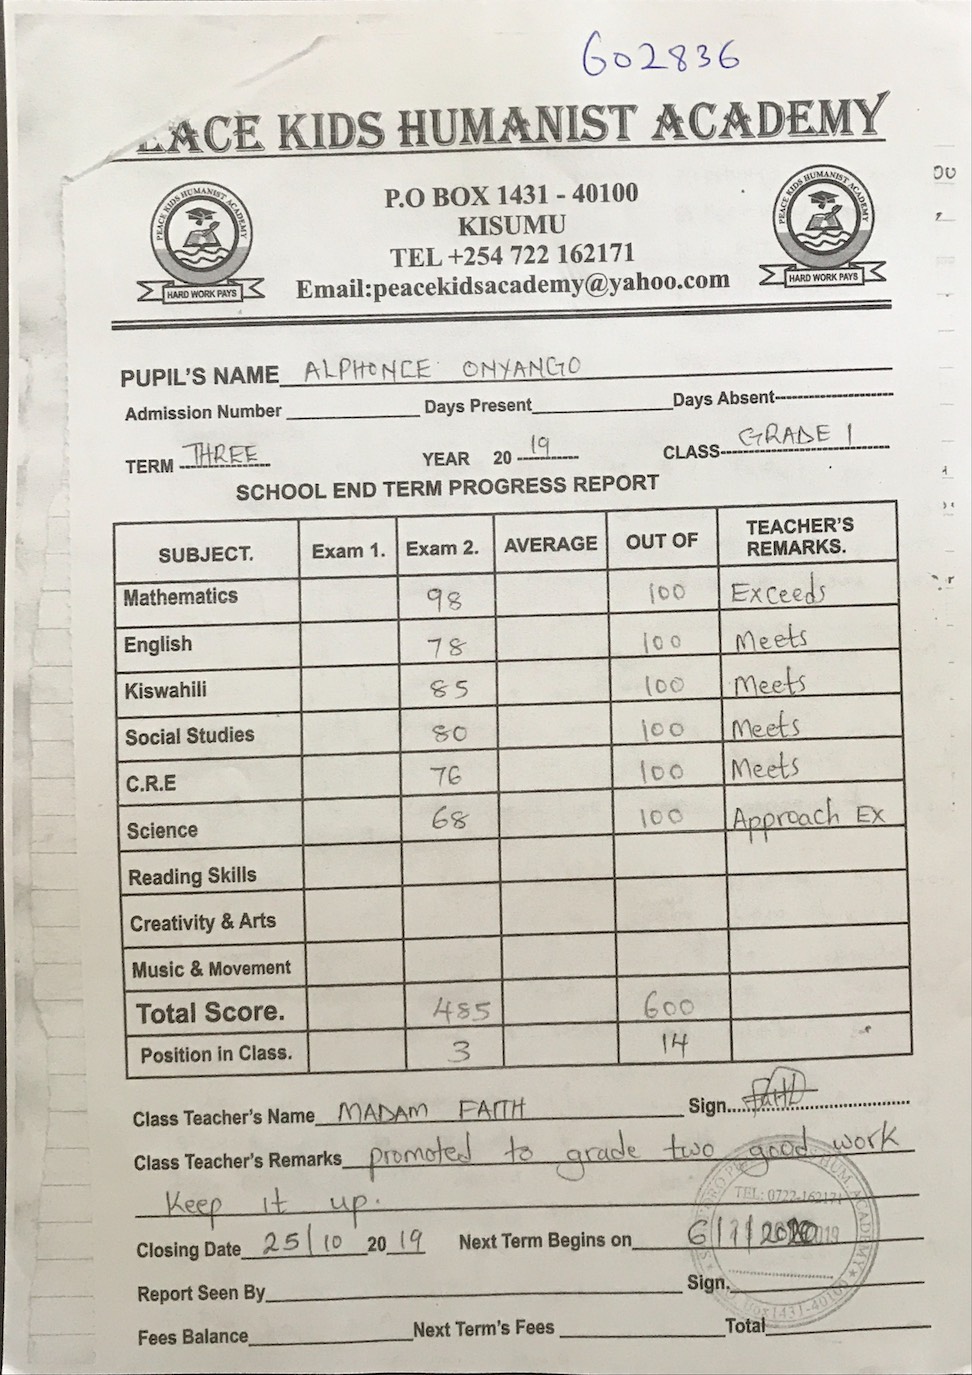 G02836
EACE KIDS HUMANIST ACADEMY
P.O BOX 1431 - 40100
KISUMU
TEL +254 722 162171
Email:peacekidsacademy@yahoo.com
PEACE KIDS HUMANIST ACADEMY
HARD WORK PAYS
PEACE KIDS HUMANIST ACADEMY
HARD WORK PAYS
PUPIL'S NAME ALPHONCE ONYANGO
Admission Number Days Present Days Absent
TERM THREE YEAR 20 19 CLASS GRADE 1
SCHOOL END TERM PROGRESS REPORT
SUBJECT. Exam 1. Exam 2. AVERAGE OUT OF TEACHER'S REMARKS.
Mathematics 98 100 Exceeds
English 78 100 Meets
Kiswahili 85 100 Meets
Social Studies 80 100 Meets
C.R.E 76 100 Meets
Science 68 100 Approach Ex
Reading Skills
Creativity & Arts
Music & Movement
Total Score. 485 600
Position in Class. 3 14
Class Teacher's Name MADAM FAITH Sign.
Class Teacher's Remarks promoted to grade two good work
Keep it up.
Closing Date 25/10 20 19 Next Term Begins on 6/1/2020
Report Seen By Sign.
Fees Balance Next Term's Fees Total
TEL: 0722-162171
HUM. ACADEMY
Box 1431-40100